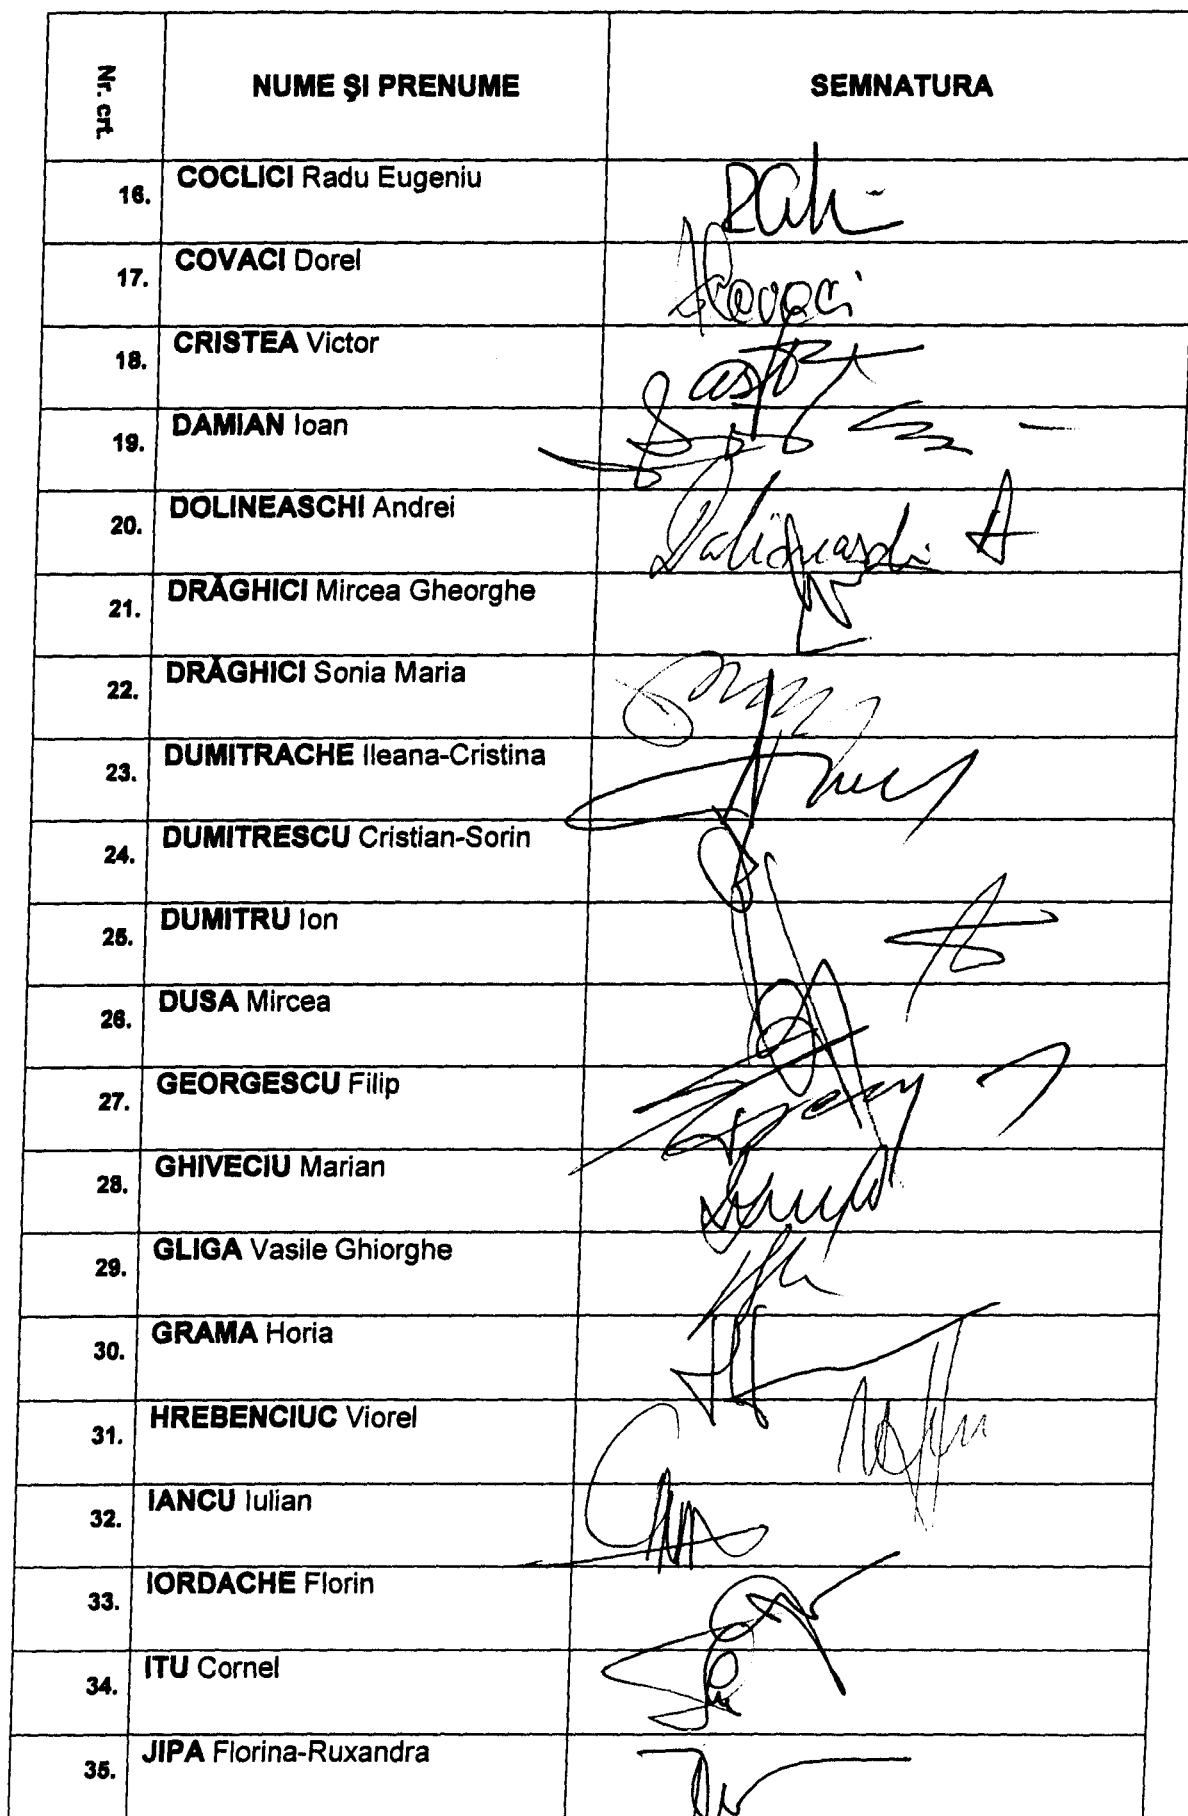 Nr. crt. NUME ŞI PRENUME SEMNATURA
16. COCLICI Radu Eugeniu
17. COVACI Dorel Covaci
18. CRISTEA Victor
19. DAMIAN Ioan
20. DOLINEASCHI Andrei
21. DRĂGHICI Mircea Gheorghe
22. DRĂGHICI Sonia Maria
23. DUMITRACHE Ileana-Cristina
24. DUMITRESCU Cristian-Sorin
25. DUMITRU Ion
26. DUSA Mircea
27. GEORGESCU Filip
28. GHIVECIU Marian
29. GLIGA Vasile Ghiorghe
30. GRAMA Horia
31. HREBENCIUC Viorel
32. IANCU Iulian
33. IORDACHE Florin
34. ITU Cornel
35. JIPA Florina-Ruxandra